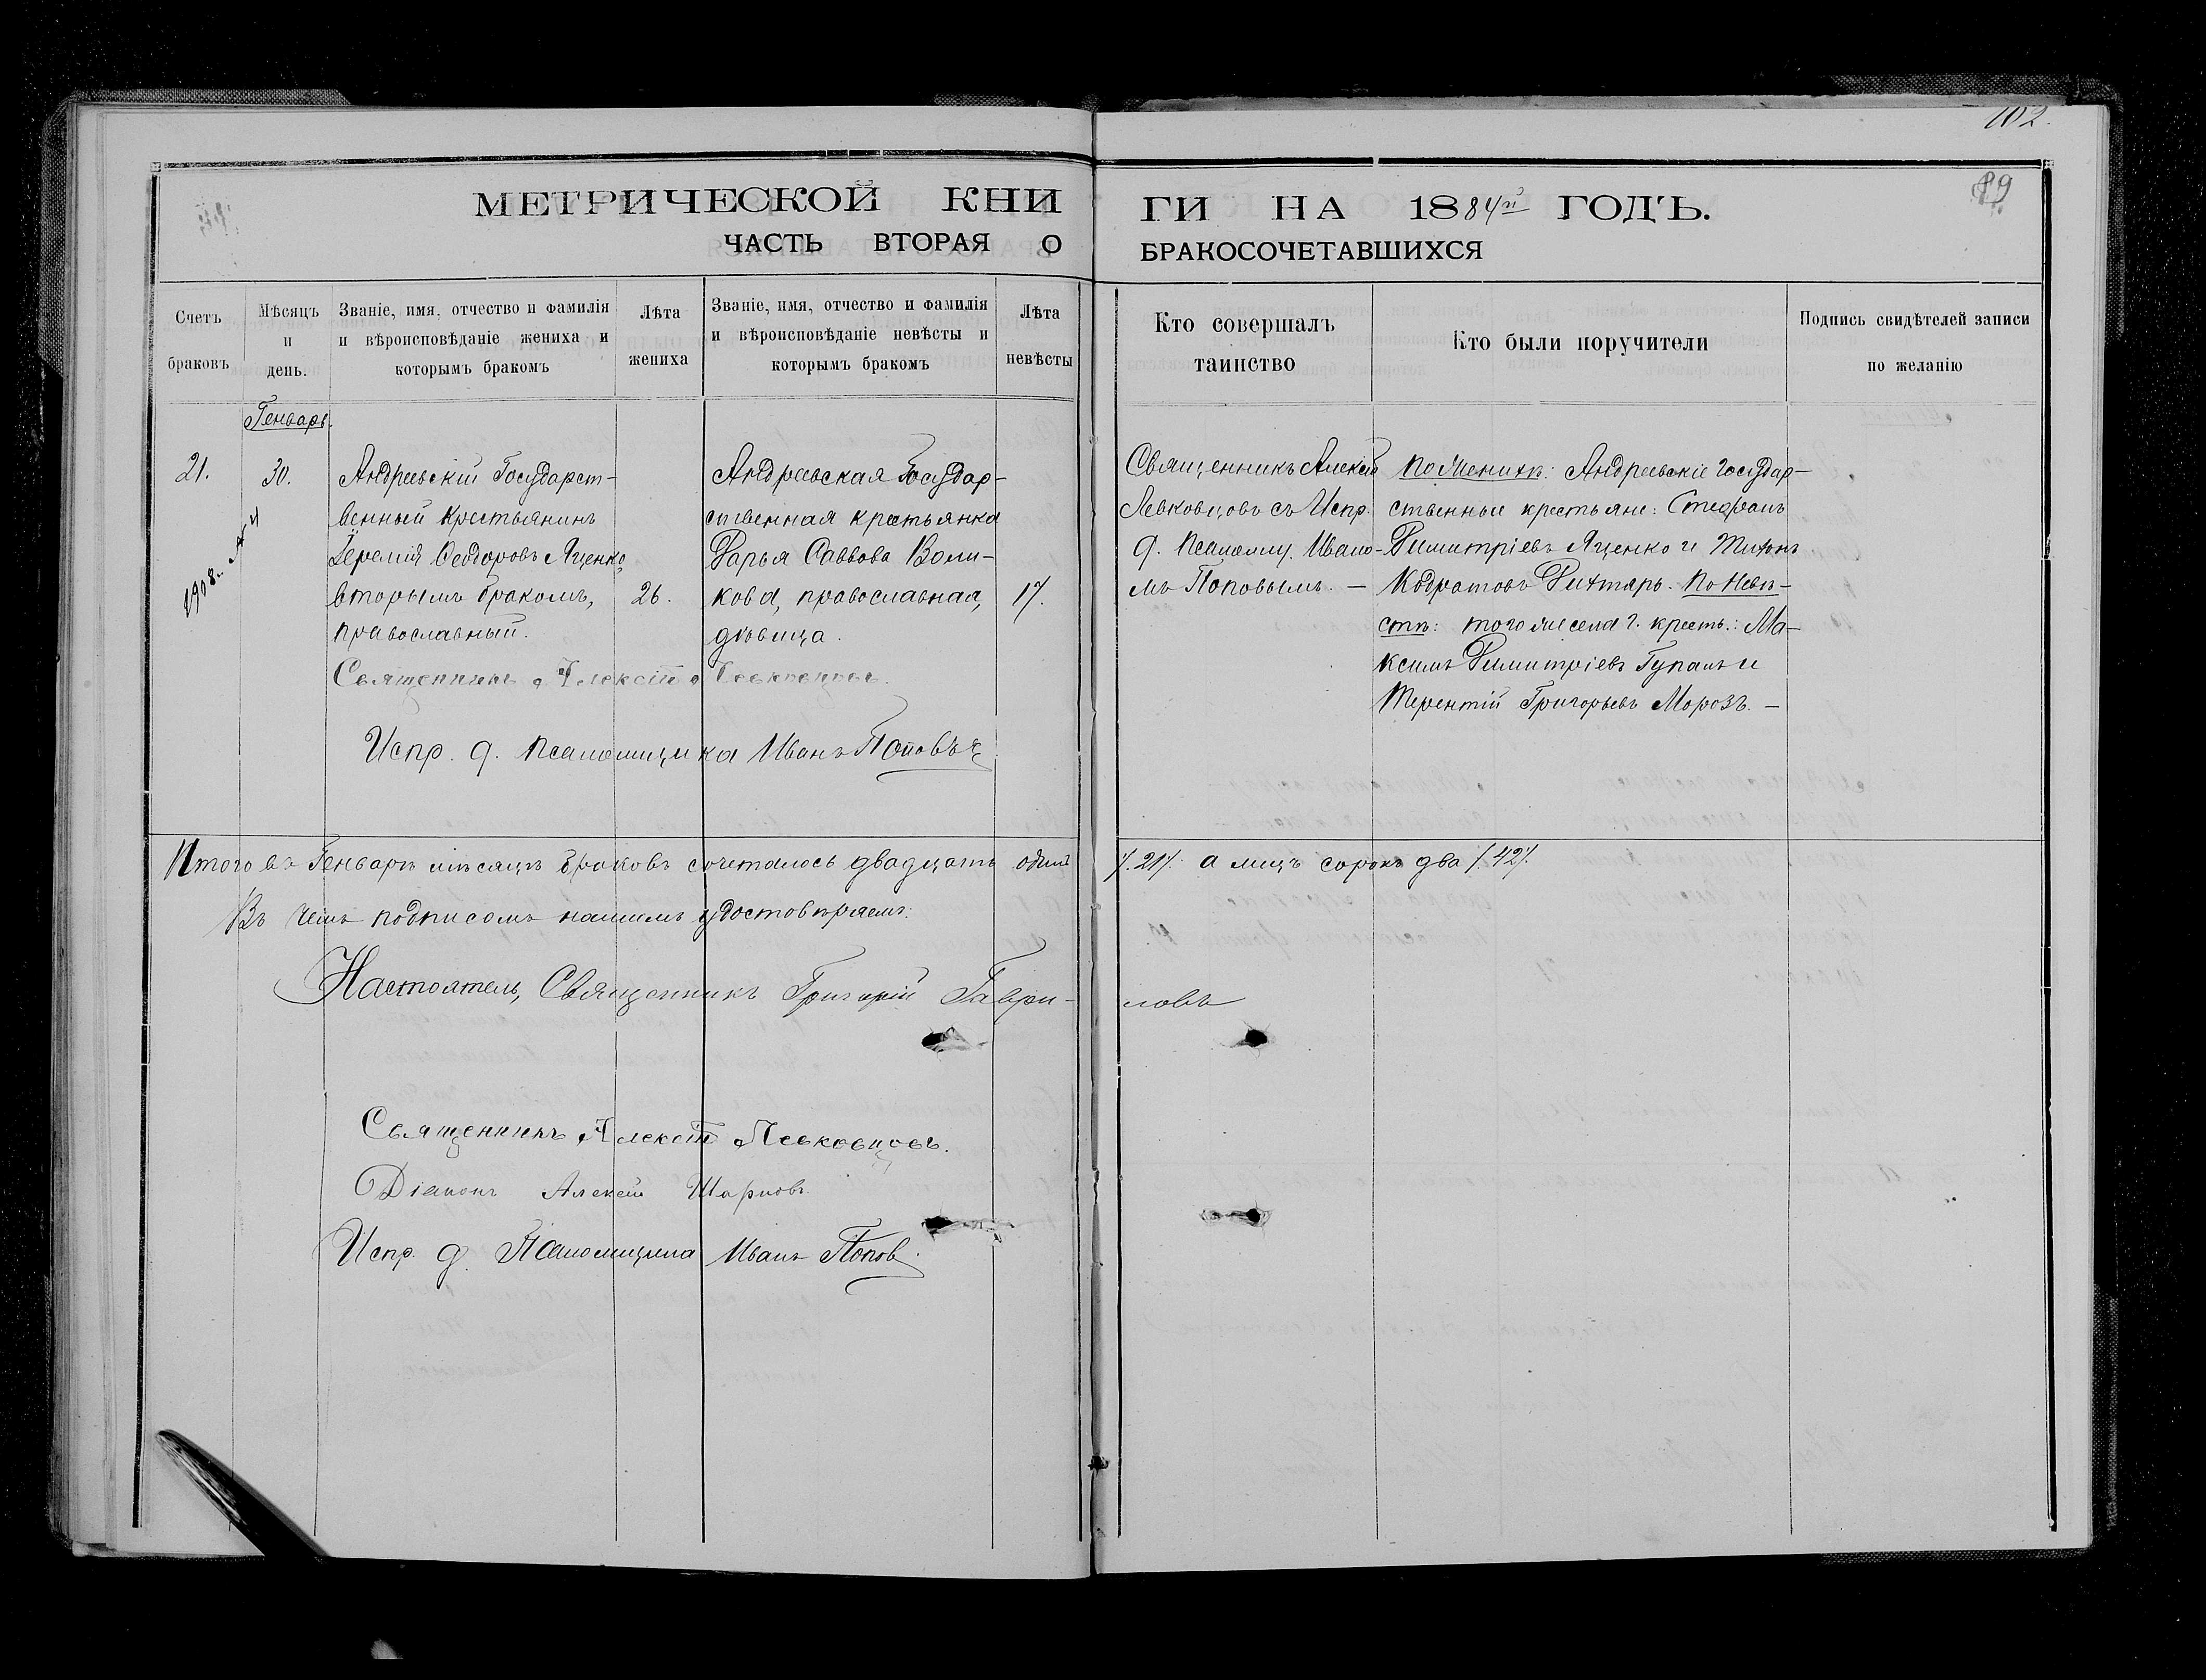 102.
МЕТРИЧЕСКОЙ КНИ
ГИ НА 1884й ГОДЪ.
89
ЧАСТЬ ВТОРАЯ О
БРАКОСОЧЕТАВШИХСЯ
Счетъ
браковъ
Мѣсяцъ
и
день.
Званіе, имя, отчество и фамилія
и вѣроисповѣданіе жениха и
которымъ бракомъ
Лѣта
жениха
Званіе, имя, отчество и фамилія
и вѣроисповѣданіе невѣсты и
которымъ бракомъ
Лѣта
невѣсты
Кто совершалъ
таинство
Кто были поручители
Подпись свидѣтелей записи
по желанію
Генварь.
21.
30.
1908 г.
Андреевскій Государст-
венный крестьянинъ
Іеремія Ѳеодоровъ Яценко,
вторымъ бракомъ,
православный.
26.
Андреевская Государ-
ственная крестьянка
Дарья Саввова Воли-
кова, православная,
дѣвица.
17.
Священникъ Алексій
Левковцовъ съ Испр.
д. псаломщ. Ивано-
мъ Поповымъ. —
По Женихѣ: Андреевскіе государ-
ственные крестьяне: Стефанъ
Димитріевъ Яценко и Тихонъ
Кодратовъ Дихтярь. По Невѣ-
стѣ: того же села г. крестъ.: Ма-
ксимъ Димитріевъ Гупалъ и
Терентій Григорьевъ Морозъ. —
Священникъ Алексій Левковцовъ.
Испр. д. псаломщика Иванъ Поповъ
Итого въ Генварѣ мѣсяцѣ браковъ сочеталось двадцать одинъ /.21/. а лицъ сорокъ два /.42/.
Въ чемъ подписомъ нашимъ удостовѣряемъ:
Настоятель, Священникъ Григорій Гаври-
ловъ
Священникъ Алексій Левковцовъ.
Діаконъ Алексій Шарповъ.
Испр. д. Псаломщика Иванъ Попов.